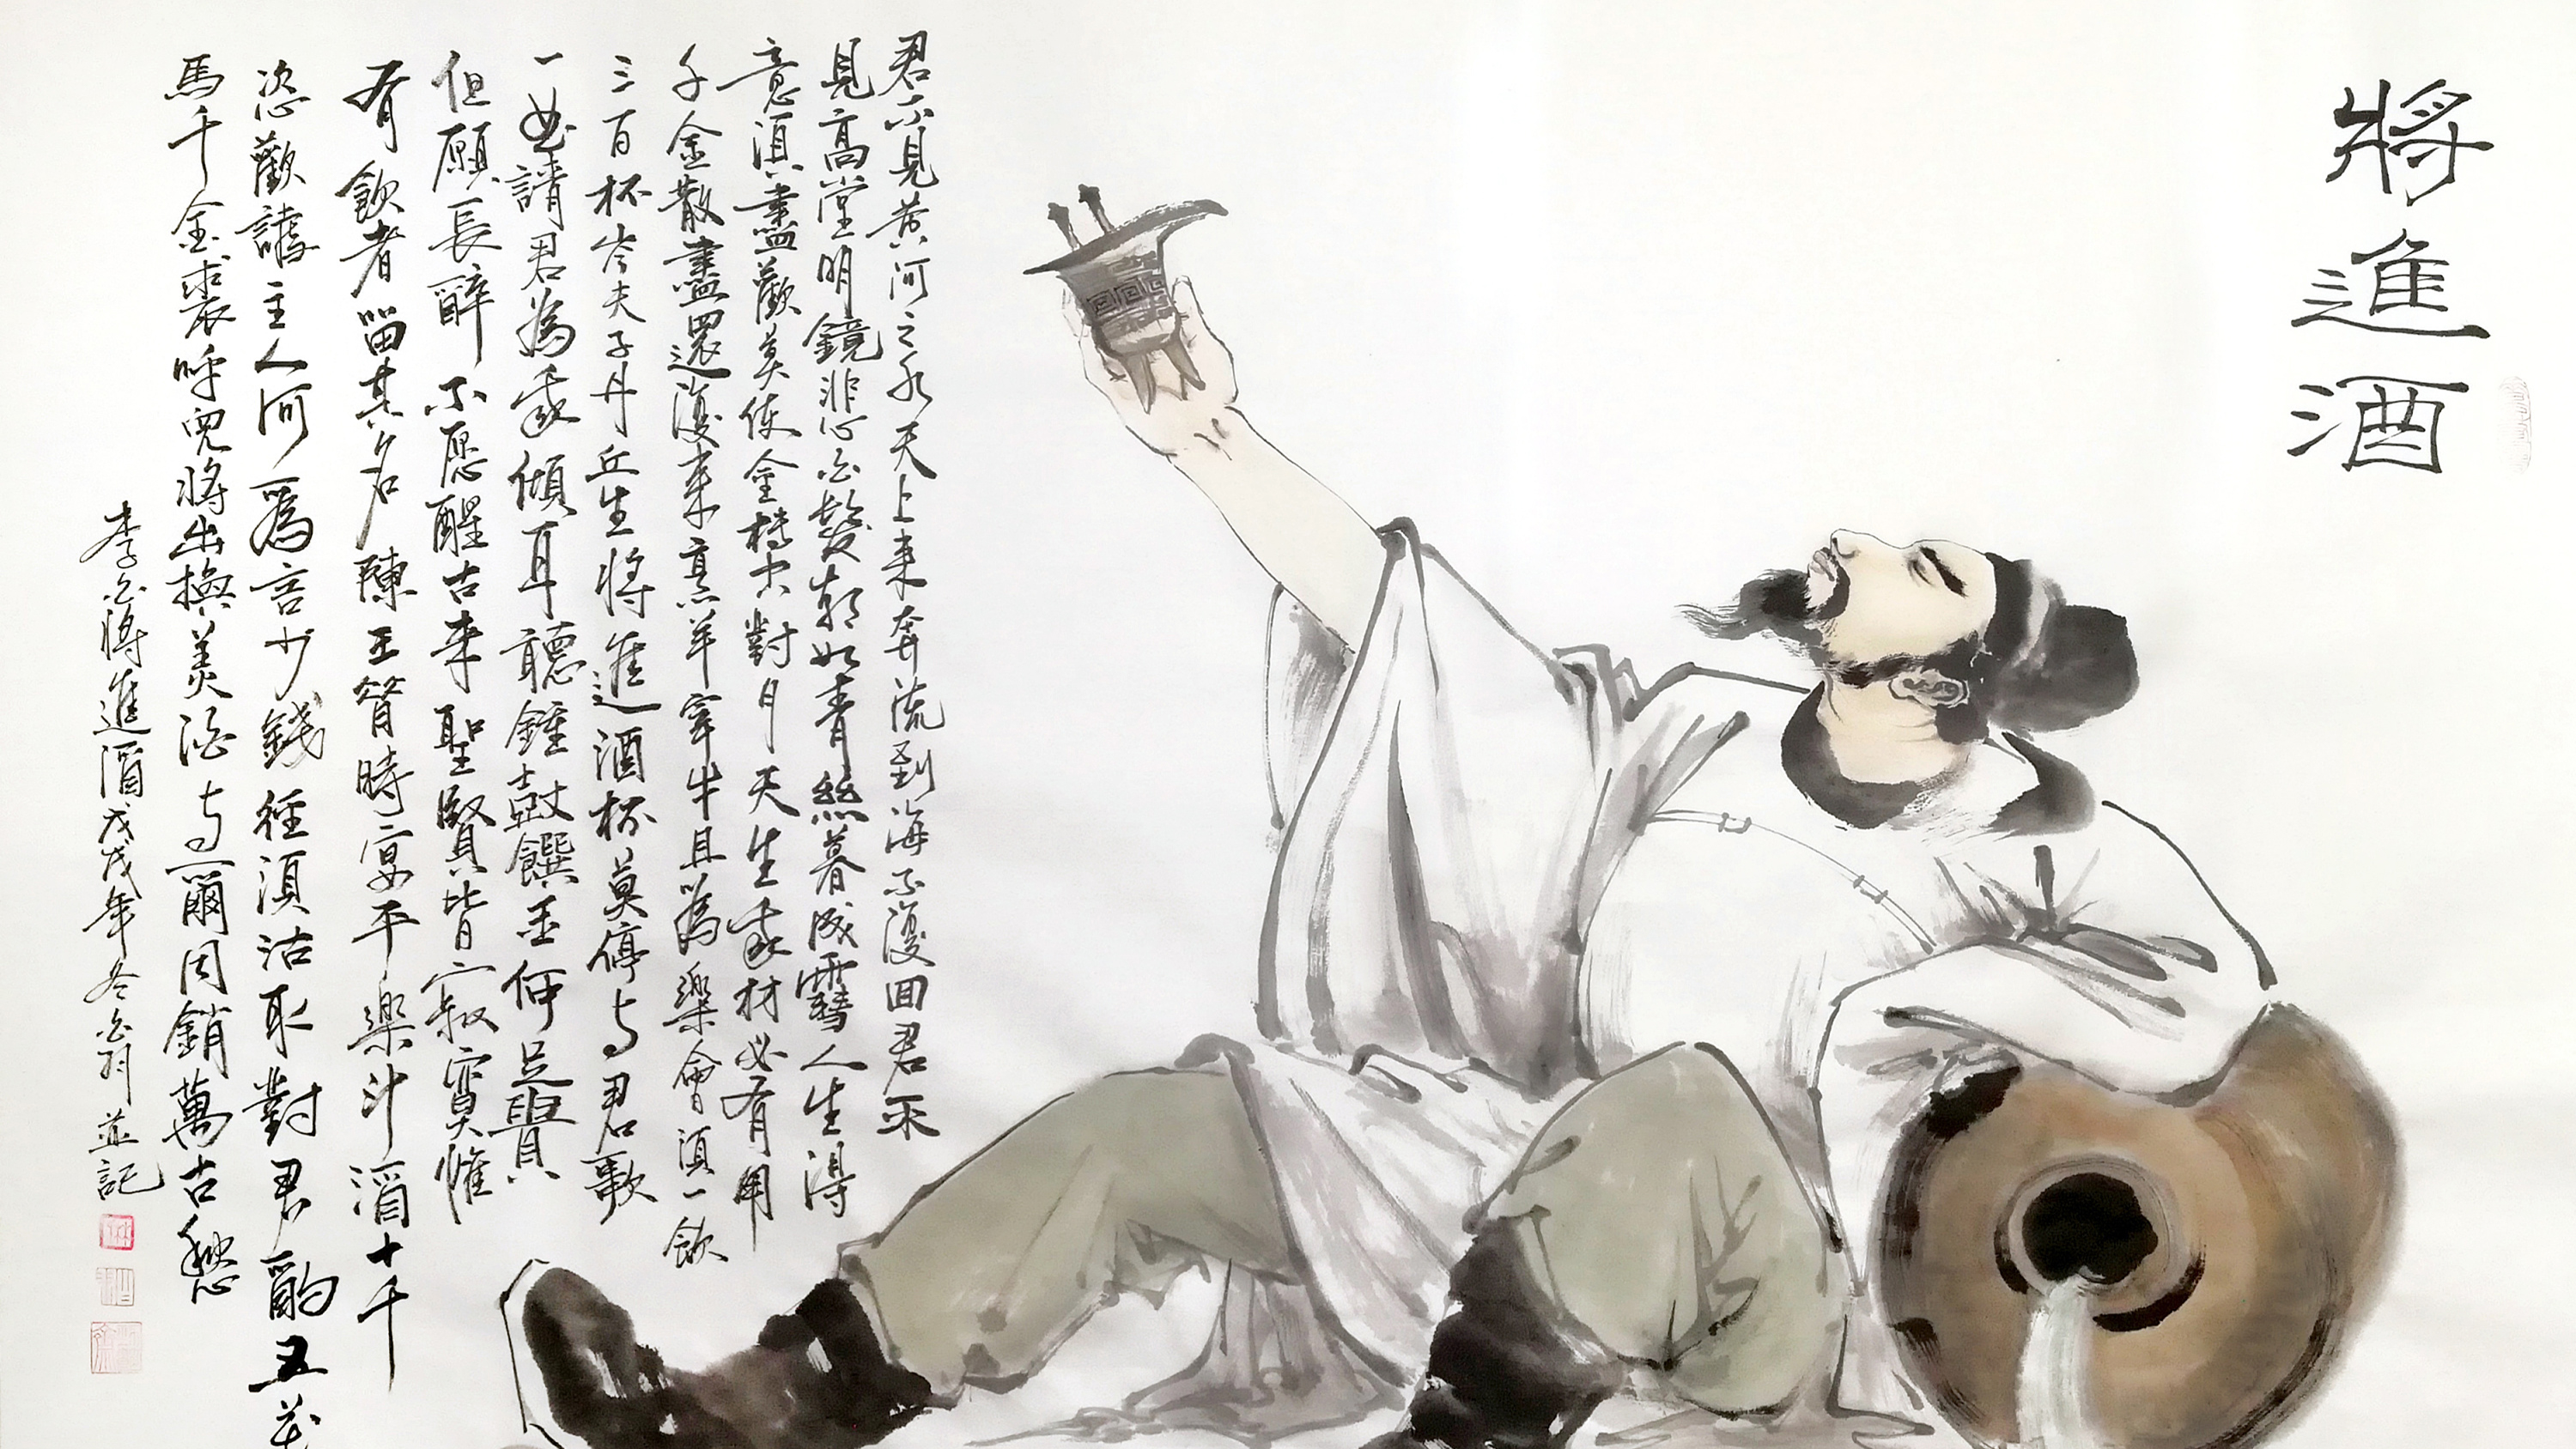 將進酒
君不見黃河之水天上来奔流到海不復回君不
見高堂明鏡悲白髮朝如青絲暮成雪人生得
意須盡歡莫使金樽空對月天生我材必有用
千金散盡還復来烹羊宰牛且為樂會須一飲
三百杯岑夫子丹丘生將進酒杯莫停与君歌
一曲請君為我傾耳聽鍾鼓饌玉何足貴
但願長醉不愿醒古来聖賢皆寂寞惟
有飲者留其名陳王昔時宴平樂斗酒十千
恣歡謔主人何為言少錢徑須沽取對君酌五花
馬千金裘呼兒將出換美酒与爾同銷萬古愁
李白將進酒戊戌年冬並記